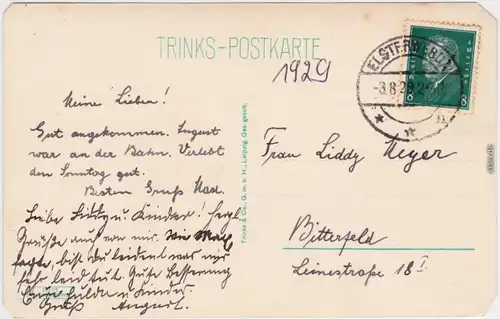 TRINKS-POSTKARTE
1929
ELSTERWERDA
-3.8.29
8 8
Meine Lieben!
Gut angekommen. August
war an der Bahn. Verlebt
den Sonntag gut.
Besten Gruß
Liebe Liddy u Kinder! Herzl.
Grüße auch von mir. wie
sagte, bist du leidend was mir
sehr leid tut. Gute Besserung
Eure Hulda u Kinder.
Gruß August.
Trinks & Co., G. m. b. H., Leipzig. Ges. gesch.
Frau Liddy Meyer
Bitterfeld
Leinestraße 18 I.